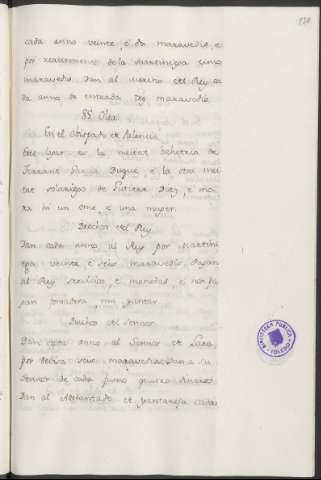 cada anno veinte, é dos maravedis, e
por reconocimiento de la martiniega cinco
maravedis. Dan al merino del Rey ca
da anno de entrada tres maravedis
85 Olea.
En el Obispado de Palencia
Este logar es la meitat behetria de
Garcia Duque, e la otra mei
tat solariega de Gutierre Diez, e mo
ra hi un ome e una muger.
Derechos del Rey.
Dan cada anno al Rey por martini
ega veinte é seis maravedis. Pagan
al Rey servicios, e monedas, e non pa
gan fonsadera, nin yantar.
Derechos del Sennor.
Dan cada anno al Sennor de Lara,
por devisa seis maravedis, dan a su
Sennor de cada fumo quince dineros
Dan al Adelantado de yantareja cada
BIBLIOTECA PUBLICA
TOLEDO